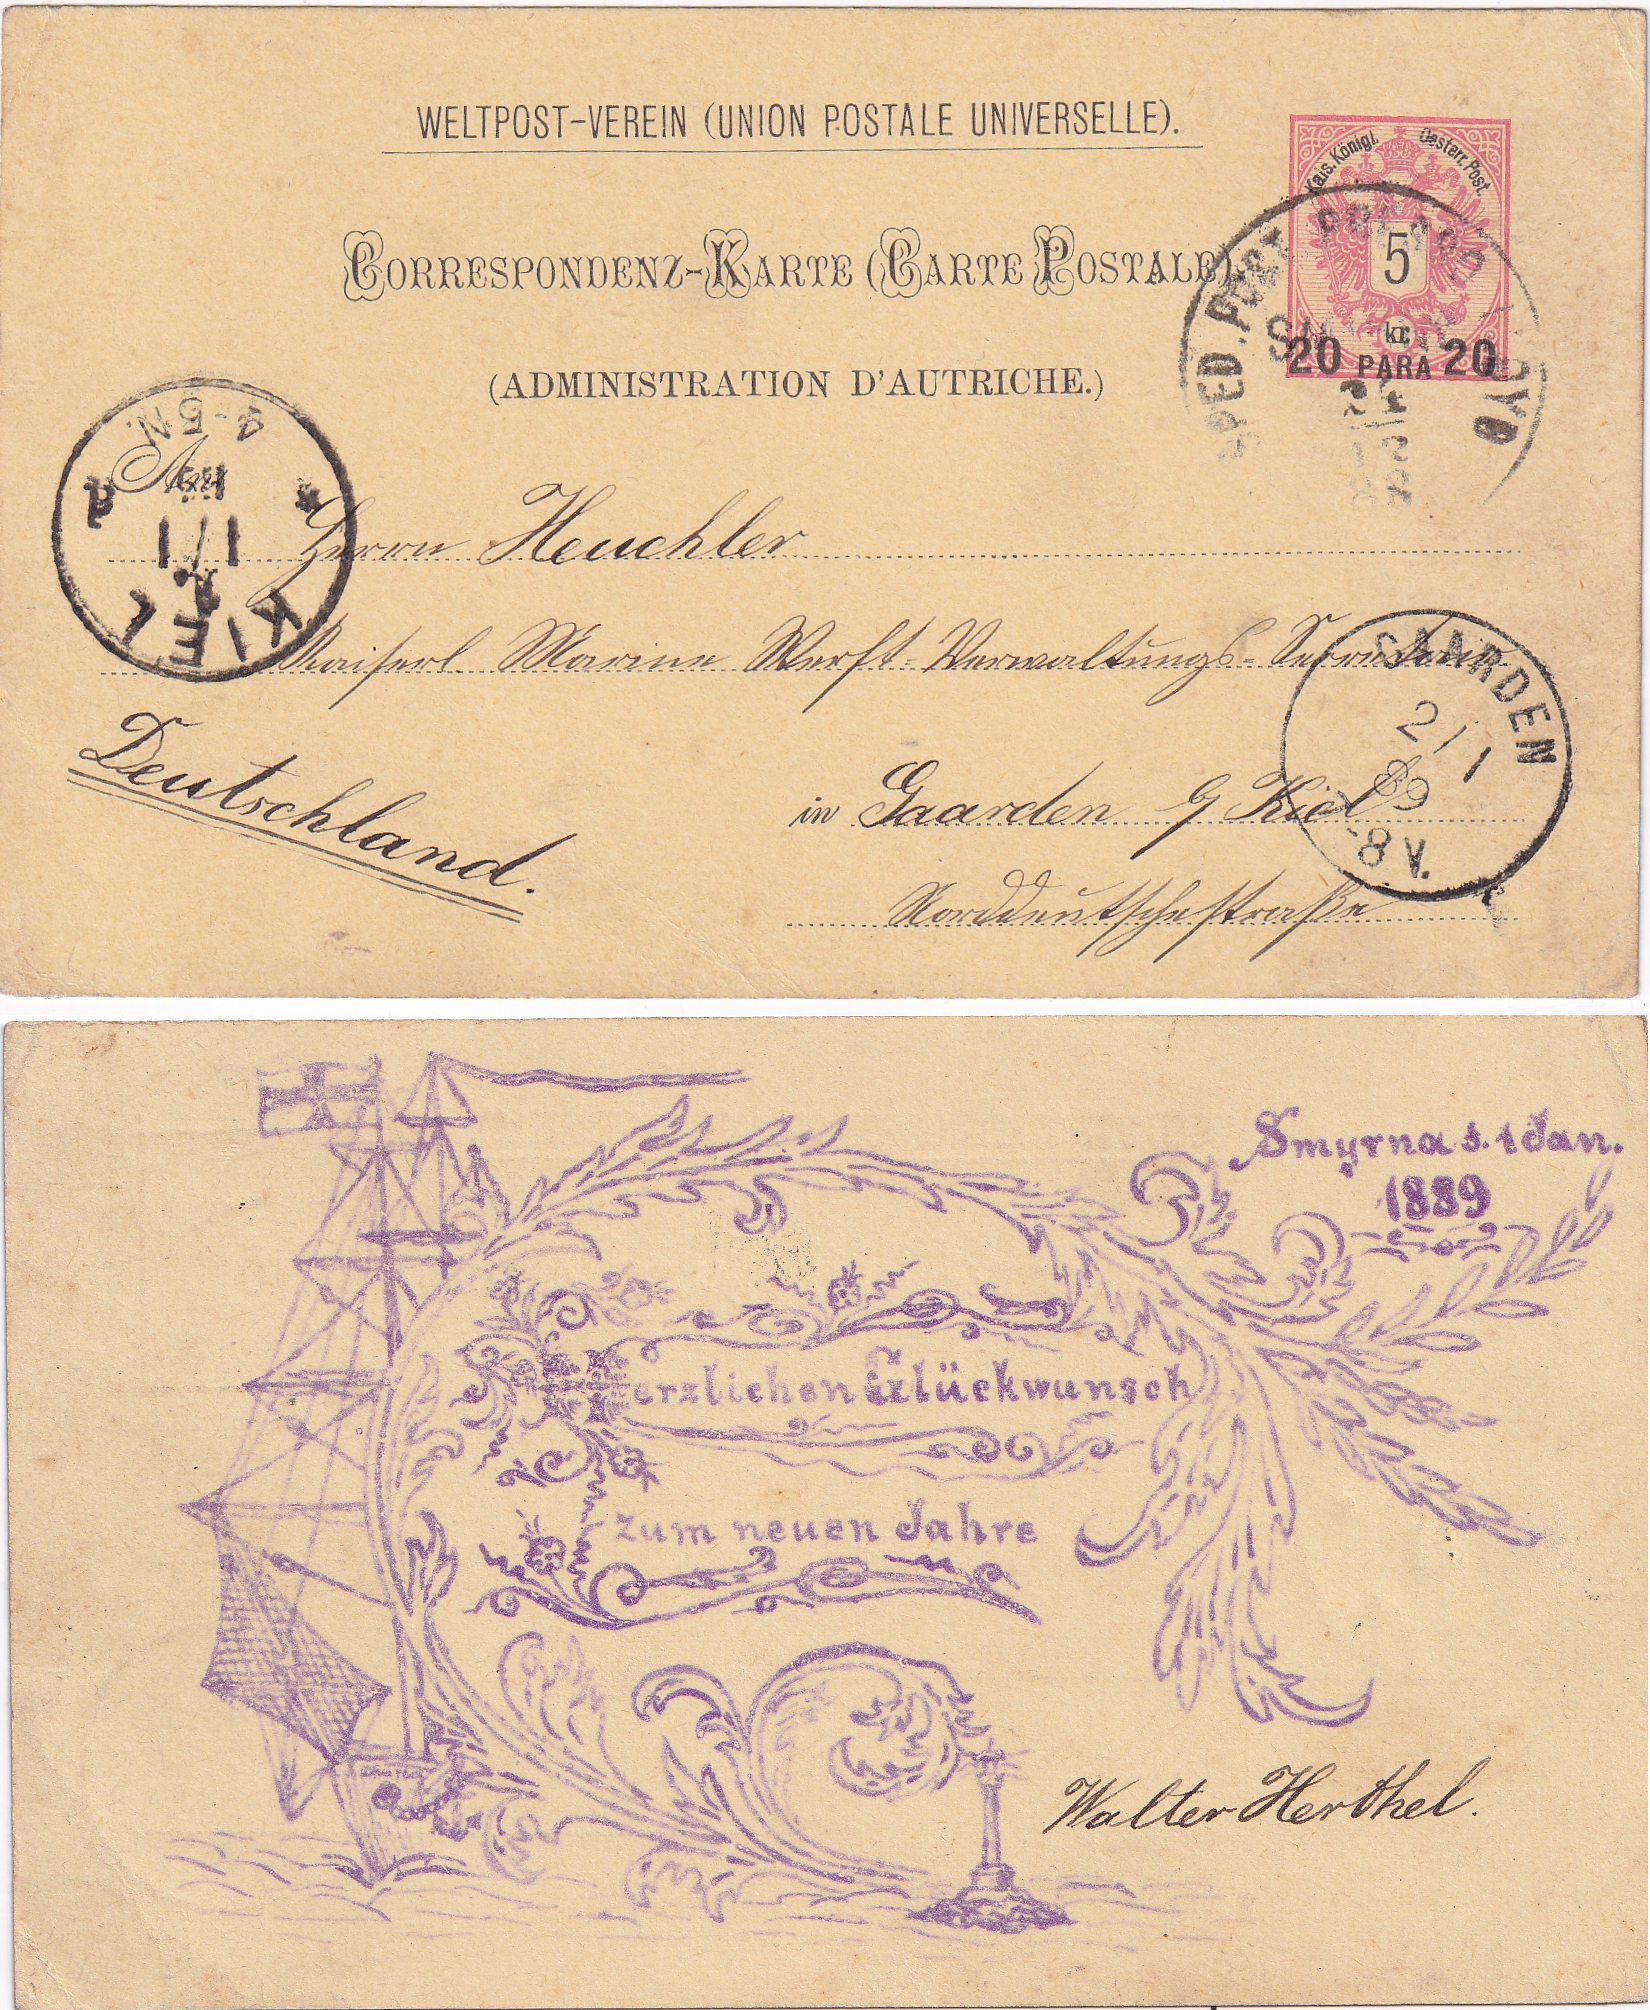 WELTPOST-VEREIN (UNION POSTALE UNIVERSELLE).
Kais. Königl. Oesterr. Post.
5
kr.
20 PARA 20
CORRESPONDENZ-KARTE (CARTE POSTALE)
(ADMINISTRATION D'AUTRICHE.)
SPED. POST
KIEL
1/1
4-5N.
An
Herrn Heuchler
Kaiserl. Marine Werft-Verwaltungs-
in Gaarden b/ Kiel
Norddeutschestraße
Deutschland.
GAARDEN
2/1
89
-8V.
Smyrna d. 1 Jan.
1889
Herzlichen Glückwunsch
zum neuen Jahre
Walter Herthel.